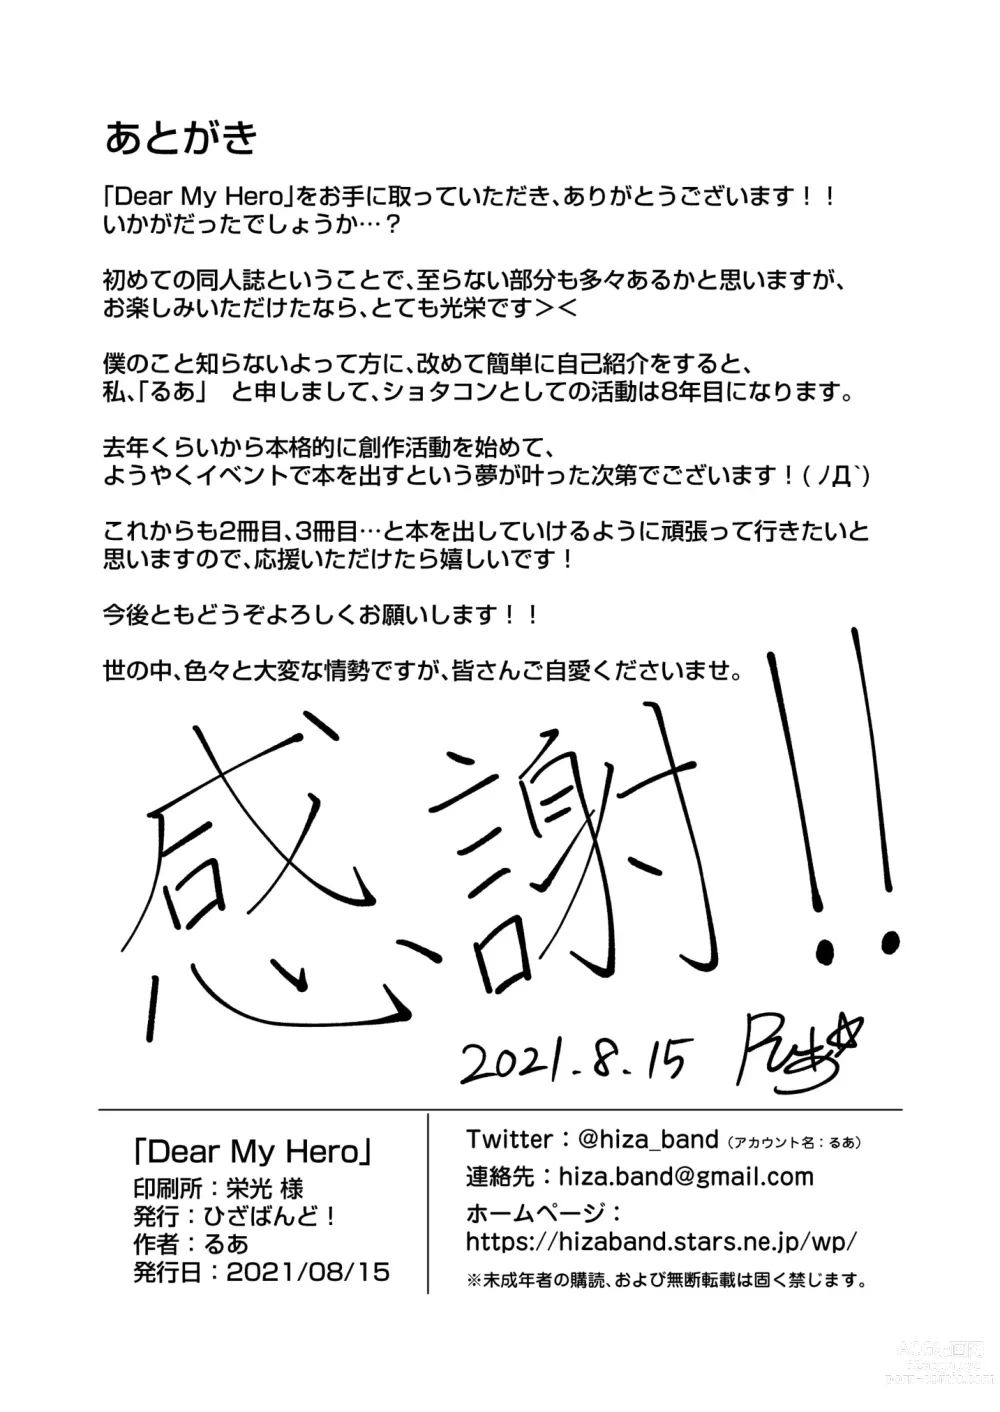 あとがき
「Dear My Hero」をお手に取っていただき、ありがとうございます！！
いかがだったでしょうか…？
初めての同人誌ということで、至らない部分も多々あるかと思いますが、
お楽しみいただけたなら、とても光栄です＞＜
僕のこと知らないよって方に、改めて簡単に自己紹介をすると、
私、「るあ」　と申しまして、ショタコンとしての活動は8年目になります。
去年くらいから本格的に創作活動を始めて、
ようやくイベントで本を出すという夢が叶った次第でございます！( ﾉД`)
これからも2冊目、3冊目…と本を出していけるように頑張って行きたいと
思いますので、応援いただけたら嬉しいです！
今後ともどうぞよろしくお願いします！！
世の中、色々と大変な情勢ですが、皆さんご自愛くださいませ。
感謝!!
2021.8.15
「Dear My Hero」
印刷所：栄光 様
発行：ひざばんど！
作者：るあ
発行日：2021/08/15
Twitter：@hiza_band（アカウント名：るあ）
連絡先：hiza.band@gmail.com
ホームページ：
https://hizaband.stars.ne.jp/wp/
※未成年者の購読、および無断転載は固く禁じます。